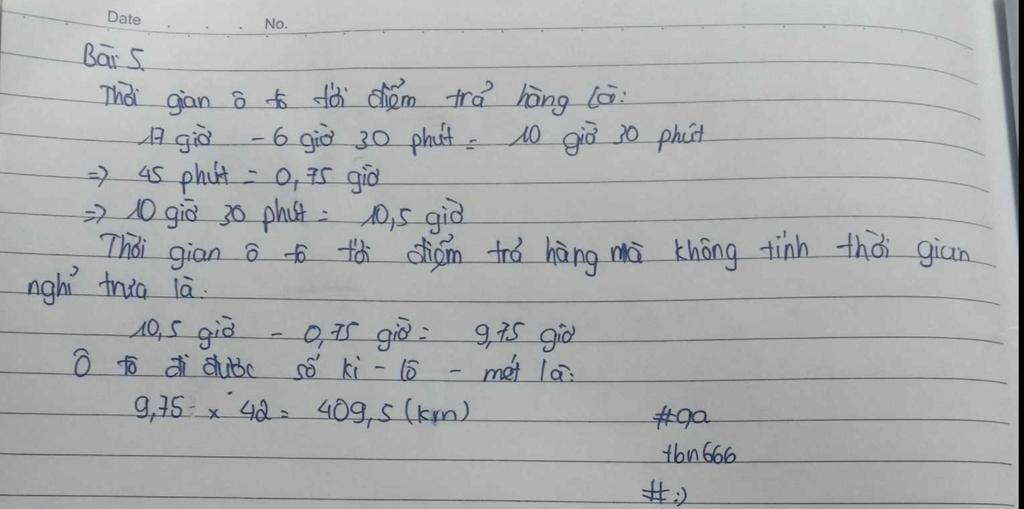 Date . . . . No.
Bài 5.
Thời gian ô tô tới điểm trả hàng là:
17 giờ - 6 giờ 30 phút = 10 giờ 30 phút
=> 45 phút = 0,75 giờ
=> 10 giờ 30 phút = 10,5 giờ
Thời gian ô tô tới điểm trả hàng mà không tính thời gian
nghỉ trưa là:
10,5 giờ - 0,75 giờ = 9,75 giờ
Ô tô đi được số ki - lô - mét là:
9,75 x 42 = 409,5 (km)
#ga
tbn666
#:)